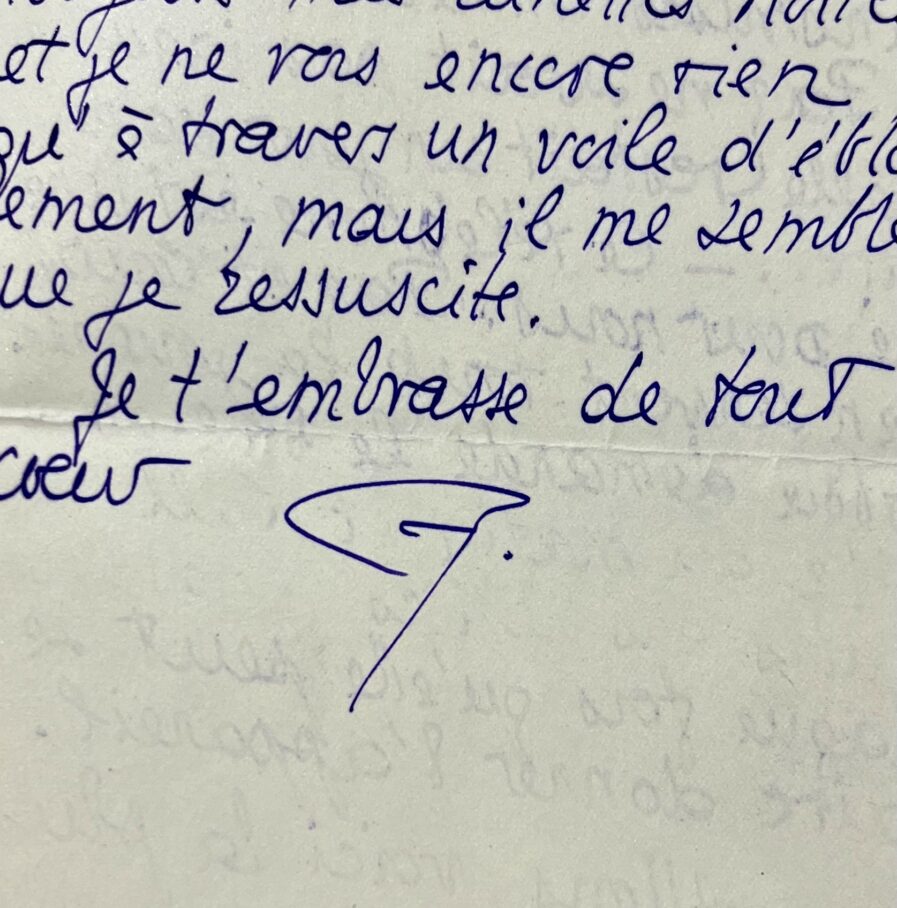 et je ne vois encore rien
qu'à travers un voile d'éblo
ement, mais il me semble
ue je ressuscite.
Je t'embrasse de tout
coeur
G.